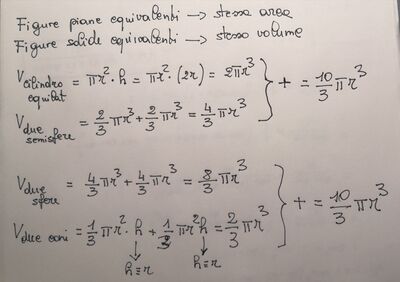 Figure piane equivalenti → stessa area
Figure solide equivalenti → stesso volume
V cilindro equilat = πr² · h = πr² · (2r) = 2πr³
V due semisfere = 2/3 πr³ + 2/3 πr³ = 4/3 πr³
} + = 10/3 πr³
V due sfere = 4/3 πr³ + 4/3 πr³ = 8/3 πr³
V due coni = 1/3 πr² · h + 1/3 πr² h = 2/3 πr³
} + = 10/3 πr³
h=r h=r